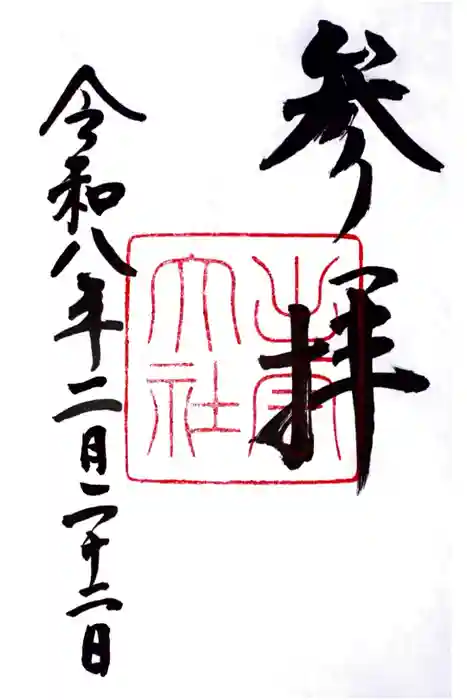 参拝
大社
令和八年二月二十二日